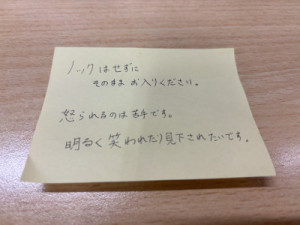 ノックはせずに
そのままお入りください。
怒られるのは苦手です。
明るく笑われたり見下されたいです。